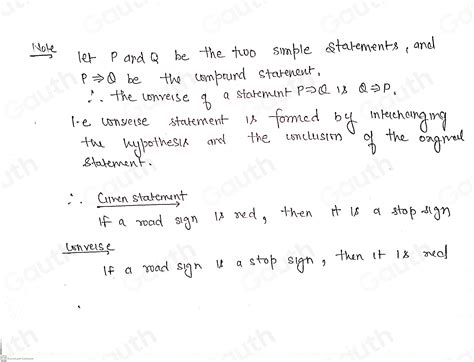 Note let P and Q be the two simple statements, and
P ⇒ Q be the compound statement.
∴ the converse of a statement P ⇒ Q is Q ⇒ P.
i.e converse statement is formed by interchanging
the hypothesis and the conclusion of the original
statement.
∴ Given statement
If a road sign is red, then it is a stop sign
Converse
If a road sign is a stop sign, then it is red
Gauth